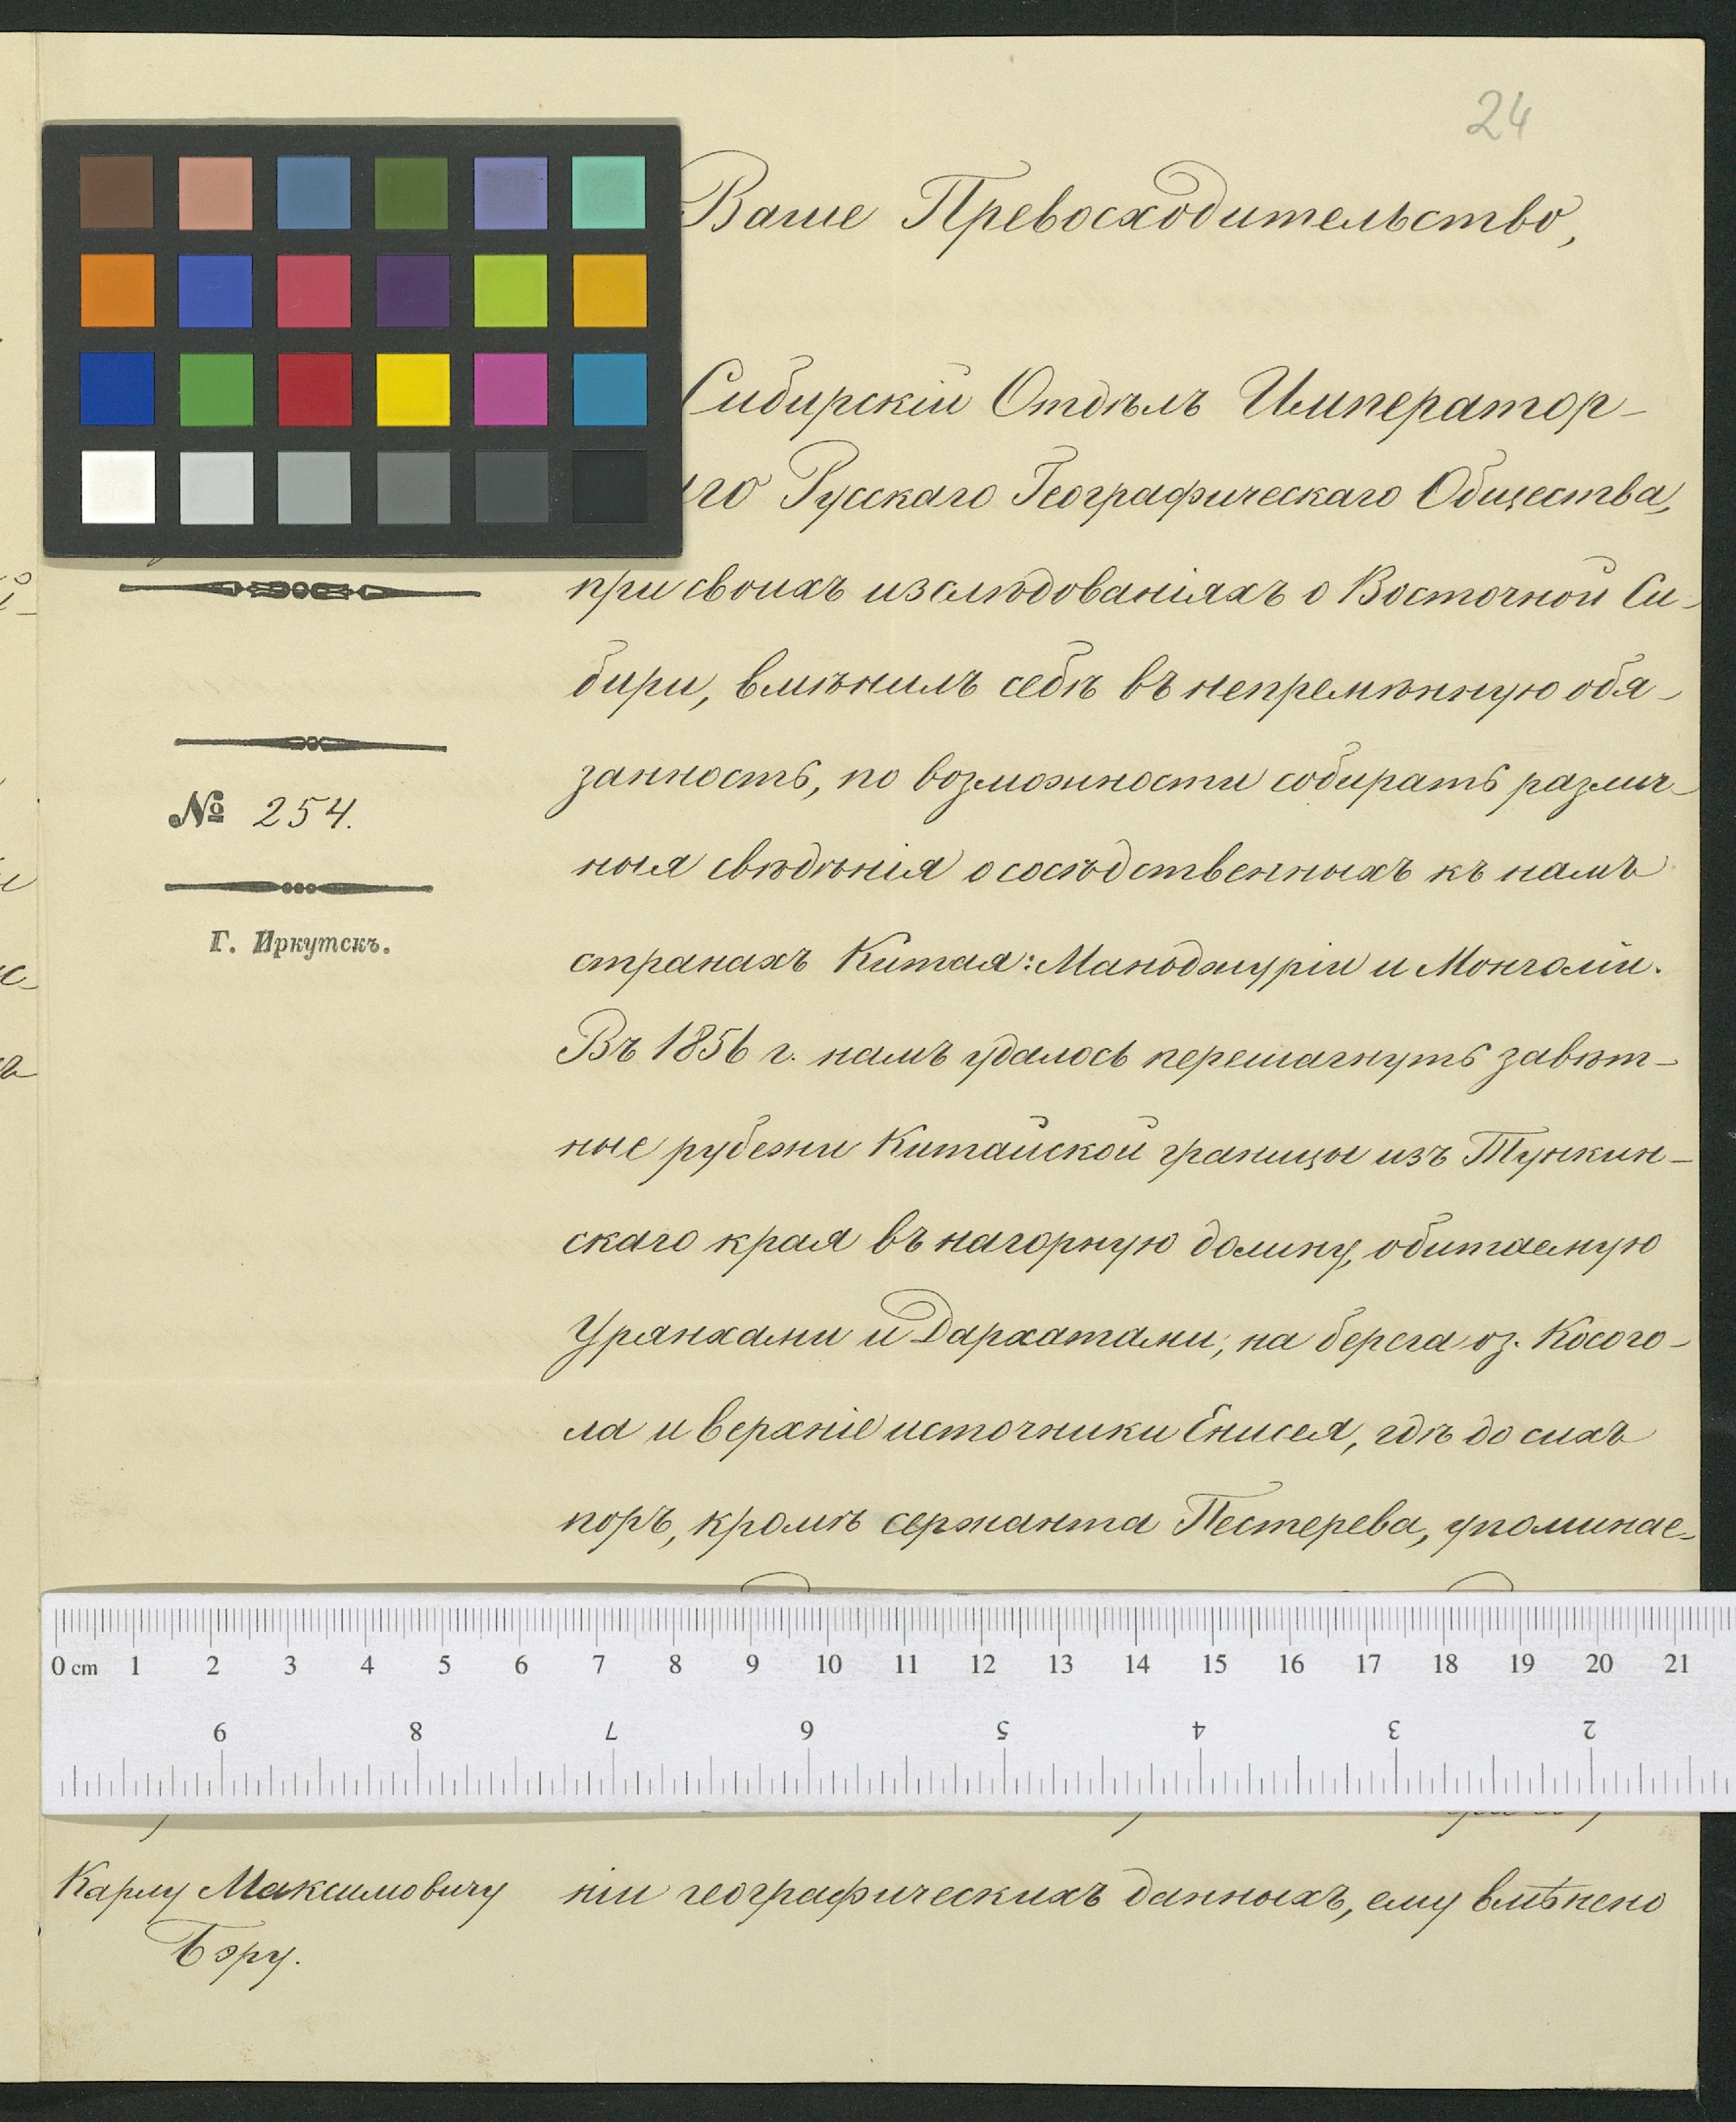 24
Ваше Превосходительство,
Сибирскій Отдѣлъ Император-
го Русскаго Географическаго Общества,
при своихъ изслѣдованіяхъ о Восточной Си-
бири, вмѣнилъ себѣ въ непремѣнную обя-
занность, по возможности собирать различ-
ныя свѣдѣнія о сосѣдственныхъ къ намъ
странахъ Китая: Маньджуріи и Монголіи.
Въ 1856 г. намъ удалось перешагнуть завѣт-
ные рубежи Китайской границы изъ Тункин-
скаго края въ нагорную долину, обитаемую
Урянхами и Дархатами, на берега оз. Косого-
ла и верхніе источники Енисея, гдѣ до сихъ
поръ, кромѣ сержанта Пестерева, упоминае-
ніи географическихъ данныхъ, ему вмѣнено
№ 254.
Г. Иркутскъ.
Карлу Максимовичу
Бэру.
0 cm 1 2 3 4 5 6 7 8 9 10 11 12 13 14 15 16 17 18 19 20 21
9 8 7 6 5 4 3 2